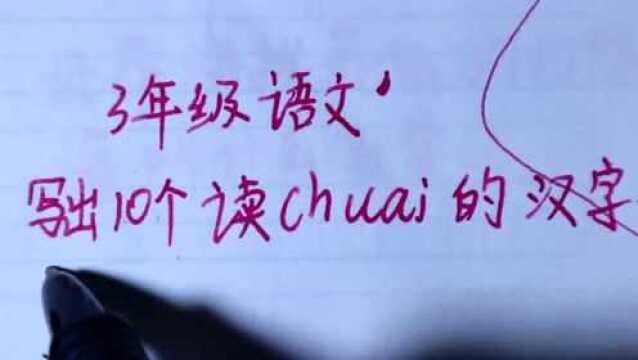 3年级语文
写出10个读chuai的汉字